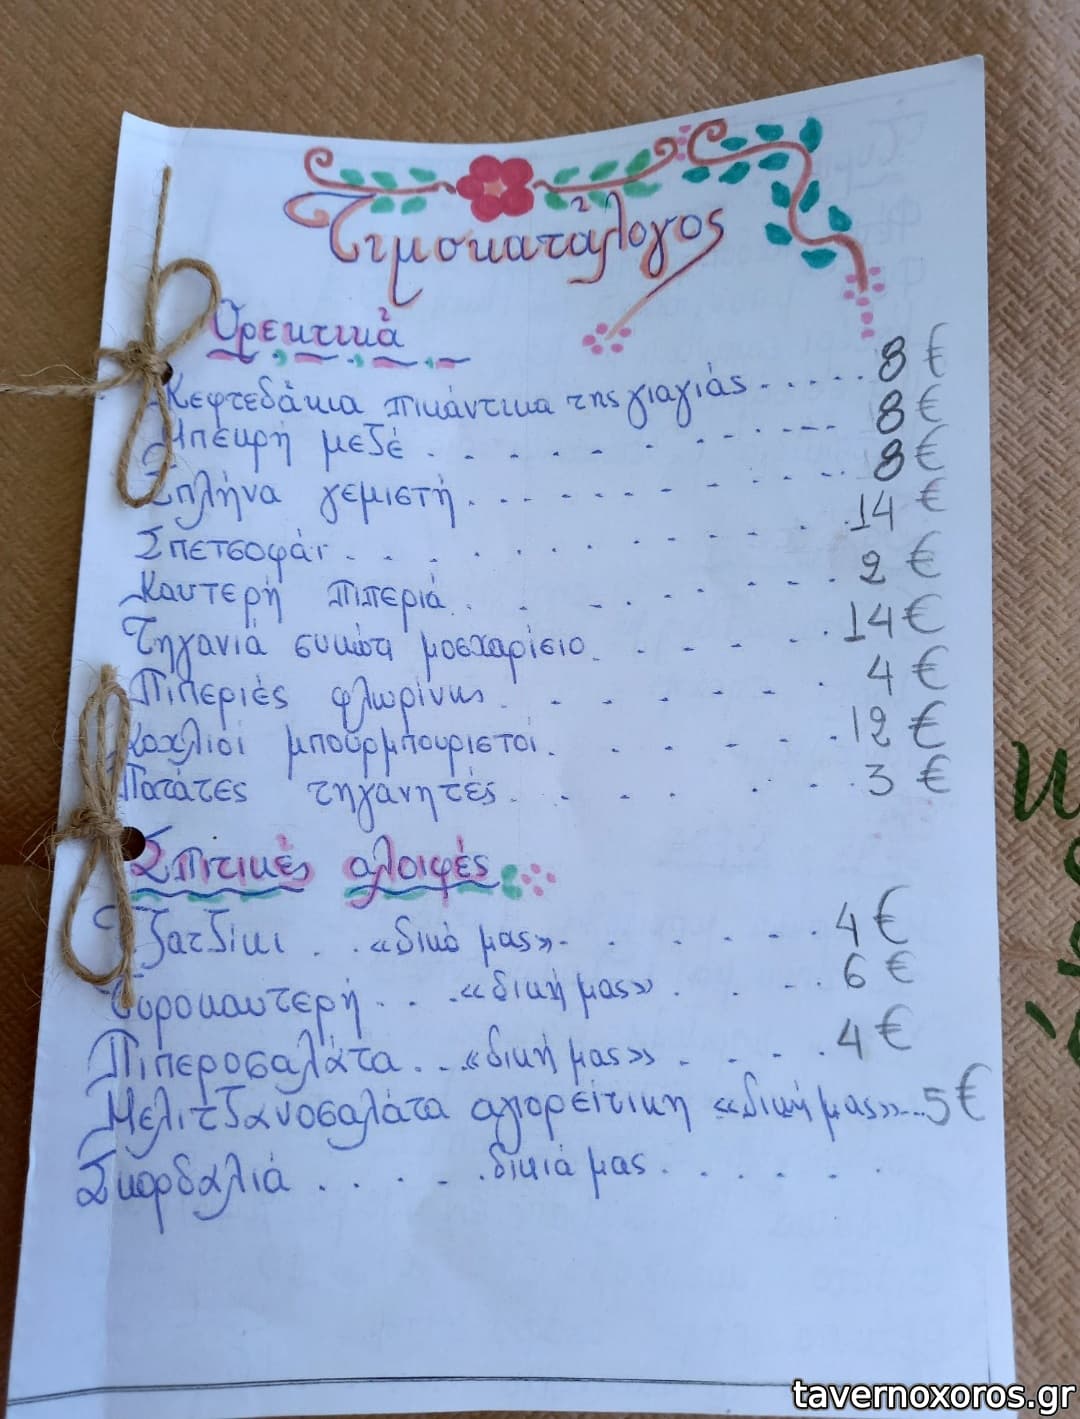 Τιμοκατάλογος
Ορεκτικά
Κεφτεδάκια πικάντικα της γιαγιάς ..... 8 €
Μπεκρή μεζέ . . . . . . . . 8 €
Σπλήνα γεμιστή . . . . . . . . 8 €
Σπετσοφάι . . . . . . . . 14 €
Καυτερή πιπεριά . . . . . . . 2 €
Τηγανιά συκώτι μοσχαρίσιο . . . . . 14 €
Πιπεριές φλωρίνης . . . . . . 4 €
Κοχλιοί μπουρμπουριστοί . . . . . 12 €
Πατάτες τηγανητές . . . . . . 3 €
Σπιτικές αλοιφές
Τζατζίκι . . «δικό μας» . . . . . 4 €
Τυροκαυτερή . . . «δική μας» . . . . 6 €
Πιπεροσαλάτα . . . «δική μας» . . . . 4 €
Μελιτζανοσαλάτα αγιορείτικη «δική μας» ... 5 €
Σκορδαλιά . . . . . δικιά μας . . . . . .
tavernoxoros.gr